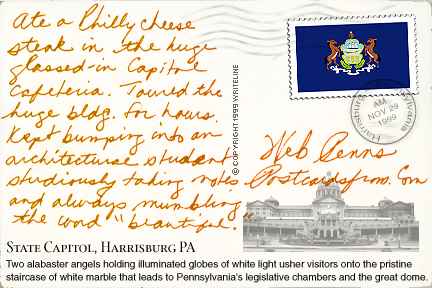 Ate a Philly cheese
steak in the huge
glassed-in Capitol
Cafeteria. Toured the
huge bldg. for hours.
Kept bumping into an
architecture student
studiously taking notes
and always mumbling
the word "beautiful."
© COPYRIGHT 1999 WRITELINE
AM
NOV 29
1999
Web Penns
Postcardsfrom.Com
STATE CAPITOL, HARRISBURG PA
Two alabaster angels holding illuminated globes of white light usher visitors onto the pristine
staircase of white marble that leads to Pennsylvania's legislative chambers and the great dome.